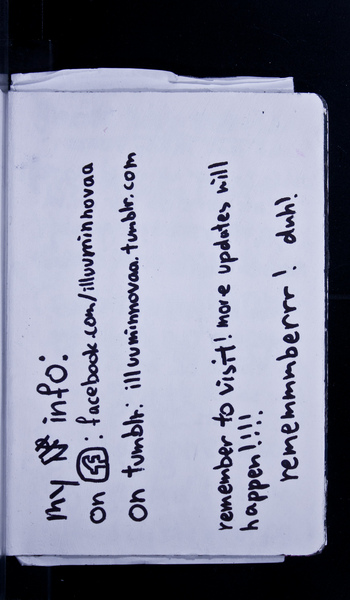 my info:
on f: facebook.com/illuuminnovaa
on tumblr: illuuminnovaa.tumblr.com
remember to visit! more updates will
happen!!!!
rememmmberrr! duh!